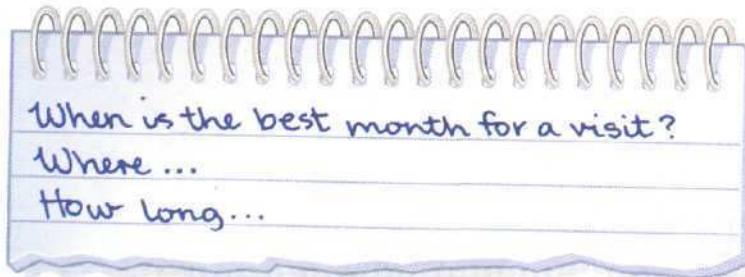 When is the best month for a visit?
Where...
How long...